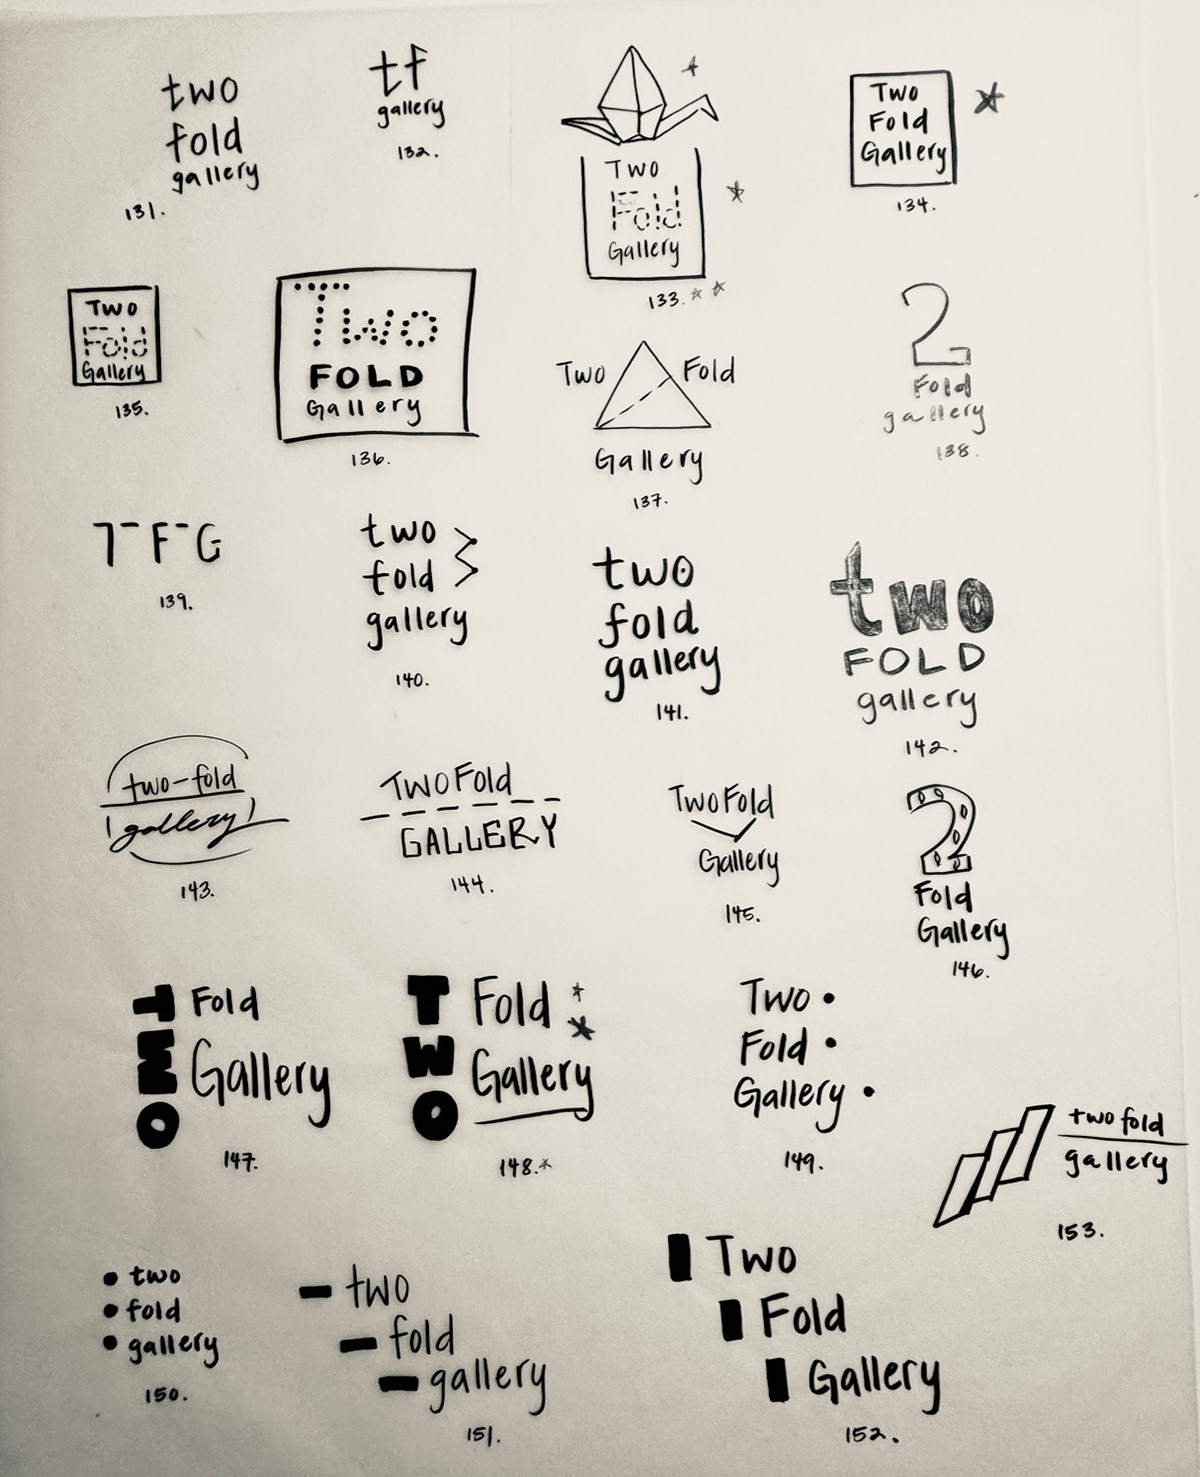 two
fold
gallery
131.
tf
gallery
132.
Two
Fold
Gallery
133.
Two
Fold
Gallery
134.
Two
Fold
Gallery
135.
Two
FOLD
Gallery
136.
Two Fold
Gallery
137.
2
Fold
gallery
138.
T-F-G
139.
two
fold
gallery
140.
two
fold
gallery
141.
two
FOLD
gallery
142.
two-fold
gallery
143.
TWO Fold
GALLERY
144.
Two Fold
Gallery
145.
2
Fold
Gallery
146.
TWO
Fold
Gallery
147.
TWO
Fold
Gallery
148.
Two •
Fold •
Gallery •
149.
two fold
gallery
153.
• two
• fold
• gallery
150.
two
fold
gallery
151.
Two
Fold
Gallery
152.